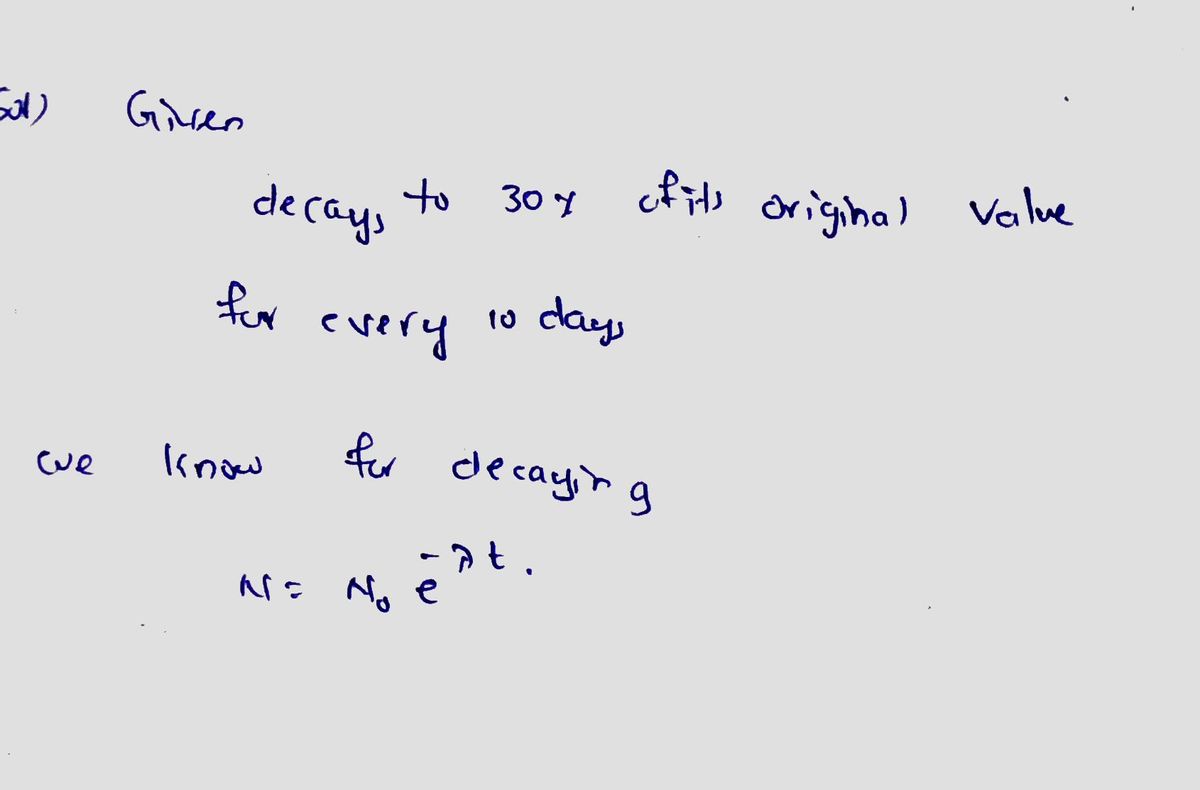 Sol) Given
decays to 30% of its original value
for every 10 days
we know for decaying
N = N₀ e^{-λt}.